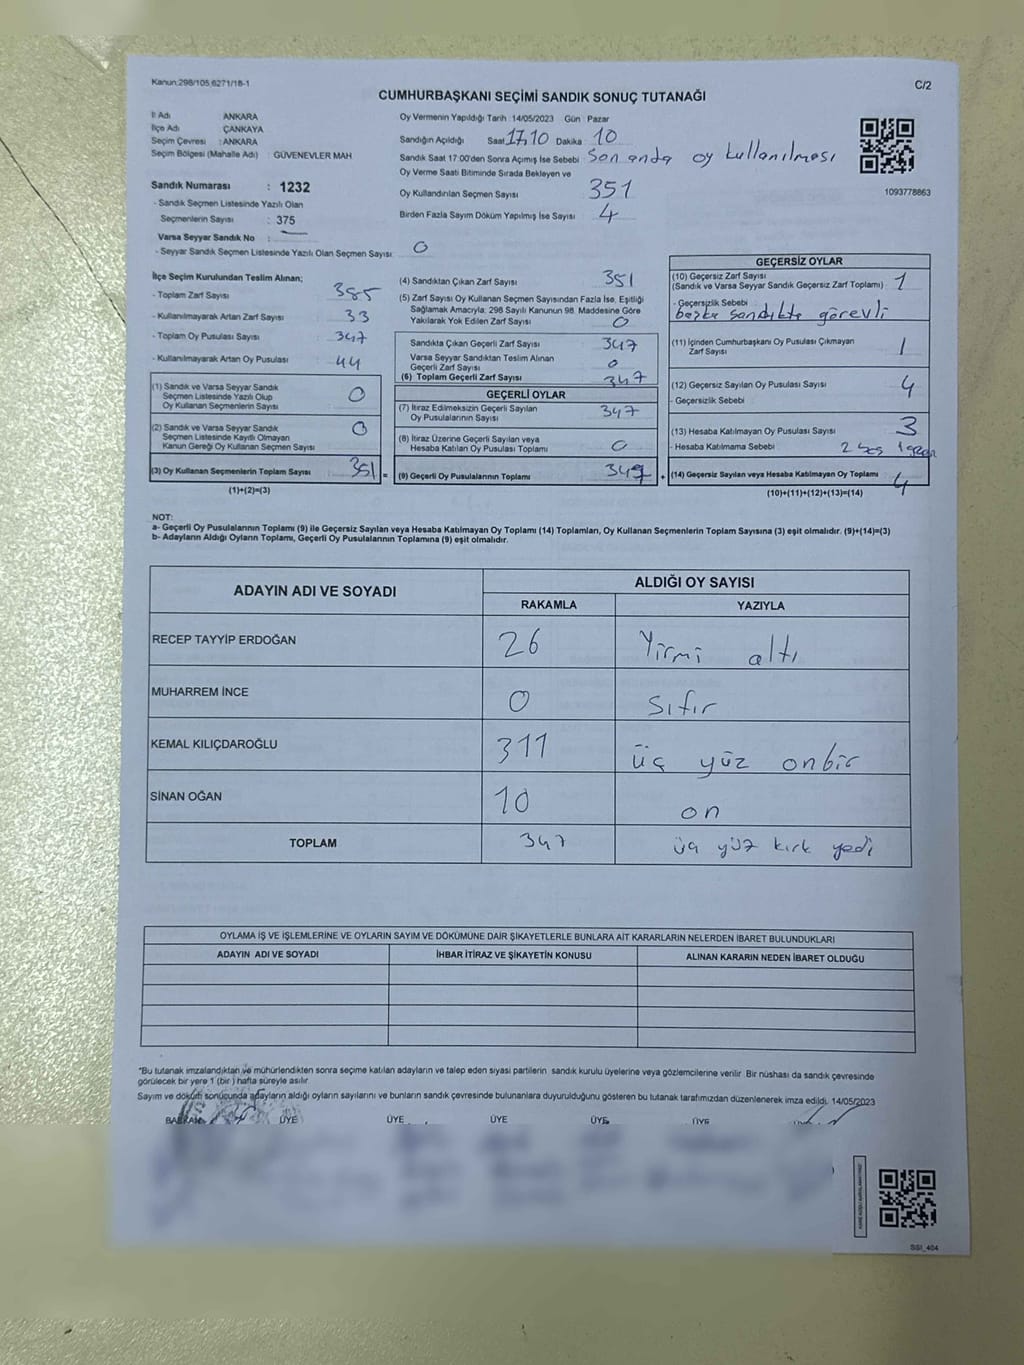 Kanun:298/105,6271/18-1
C/2
CUMHURBAŞKANI SEÇİMİ SANDIK SONUÇ TUTANAĞI
İl Adı ANKARA
İlçe Adı ÇANKAYA
Seçim Çevresi : ANKARA
Seçim Bölgesi (Mahalle Adı) : GÜVENEVLER MAH
Sandık Numarası : 1232
- Sandık Seçmen Listesinde Yazılı Olan
Seçmenlerin Sayısı : 375
Varsa Seyyar Sandık No :
- Seyyar Sandık Seçmen Listesinde Yazılı Olan Seçmen Sayısı: 0
Oy Vermenin Yapıldığı Tarih :14/05/2023 Gün : Pazar
Sandığın Açıldığı Saat 17,10 Dakika 10
Sandık Saat 17:00'den Sonra Açımış İse Sebebi : Son anda oy kullanılması
Oy Verme Saati Bitiminde Sırada Bekleyen ve
Oy Kullandırılan Seçmen Sayısı 351
Birden Fazla Sayım Döküm Yapılmış İse Sayısı 4
1093778863
İlçe Seçim Kurulundan Teslim Alınan;
- Toplam Zarf Sayısı 385
- Kullanılmayarak Artan Zarf Sayısı 33
- Toplam Oy Pusulası Sayısı 347
- Kullanılmayarak Artan Oy Pusulası 44
(1) Sandık ve Varsa Seyyar Sandık
Seçmen Listesinde Yazılı Olup
Oy Kullanan Seçmenlerin Sayısı 0
(2) Sandık ve Varsa Seyyar Sandık
Seçmen Listesinde Kayıtlı Olmayan
Kanun Gereği Oy Kullanan Seçmen Sayısı 0
(3) Oy Kullanan Seçmenlerin Toplam Sayısı 351 =
(1)+(2)=(3)
(4) Sandıktan Çıkan Zarf Sayısı 351
(5) Zarf Sayısı Oy Kullanan Seçmen Sayısından Fazla İse, Eşitliği
Sağlamak Amacıyla; 298 Sayılı Kanunun 98. Maddesine Göre
Yakılarak Yok Edilen Zarf Sayısı 0
Sandıkta Çıkan Geçerli Zarf Sayısı 347
Varsa Seyyar Sandıktan Teslim Alınan
Geçerli Zarf Sayısı 0
(6) Toplam Geçerli Zarf Sayısı 347
GEÇERLİ OYLAR
(7) İtiraz Edilmeksizin Geçerli Sayılan
Oy Pusulalarının Sayısı 347
(8) İtiraz Üzerine Geçerli Sayılan veya
Hesaba Katılan Oy Pusulası Toplamı 0
(9) Geçerli Oy Pusulalarının Toplamı +
GEÇERSİZ OYLAR
(10) Geçersiz Zarf Sayısı
(Sandık ve Varsa Seyyar Sandık Geçersiz Zarf Toplamı) 1
- Geçersizlik Sebebi
başka sandıkta görevli
(11) İçinden Cumhurbaşkanı Oy Pusulası Çıkmayan
Zarf Sayısı 1
(12) Geçersiz Sayılan Oy Pusulası Sayısı 4
- Geçersizlik Sebebi
(13) Hesaba Katılmayan Oy Pusulası Sayısı 3
- Hesaba Katılmama Sebebi 2 1
(14) Geçersiz Sayılan veya Hesaba Katılmayan Oy Toplamı 4
(10)+(11)+(12)+(13)=(14)
NOT:
a- Geçerli Oy Pusulalarının Toplamı (9) ile Geçersiz Sayılan veya Hesaba Katılmayan Oy Toplamı (14) Toplamları, Oy Kullanan Seçmenlerin Toplam Sayısına (3) eşit olmalıdır. (9)+(14)=(3)
b- Adayların Aldığı Oyların Toplamı, Geçerli Oy Pusulalarının Toplamına (9) eşit olmalıdır.
ADAYIN ADI VE SOYADI ALDIĞI OY SAYISI
RAKAMLA YAZIYLA
RECEP TAYYİP ERDOĞAN 26 Yirmi altı
MUHARREM İNCE 0 Sıfır
KEMAL KILIÇDAROĞLU 311 üç yüz onbir
SİNAN OĞAN 10 on
TOPLAM 347 üç yüz kırk yedi
OYLAMA İŞ VE İŞLEMLERİNE VE OYLARIN SAYIM VE DÖKÜMÜNE DAİR ŞİKAYETLERLE BUNLARA AİT KARARLARIN NELERDEN İBARET BULUNDUKLARI
ADAYIN ADI VE SOYADI İHBAR İTİRAZ VE ŞİKAYETİN KONUSU ALINAN KARARIN NEDEN İBARET OLDUĞU
*Bu tutanak imzalandıktan ve mühürlendikten sonra seçime katılan adayların ve talep eden siyasi partilerin sandık kurulu üyelerine veya gözlemcilerine verilir. Bir nüshası da sandık çevresinde
görülecek bir yere 1 (bir) hafta süreyle asılır
Sayım ve dökümü sonucunda adayların aldığı oyların sayılarını ve bunların sandık çevresinde bulunanlara duyurulduğunu gösteren bu tutanak tarafımızdan düzenlenerek imza edildi. 14/05/2023
BAŞKAN ÜYE ÜYE ÜYE ÜYE ÜYE
SSI_404